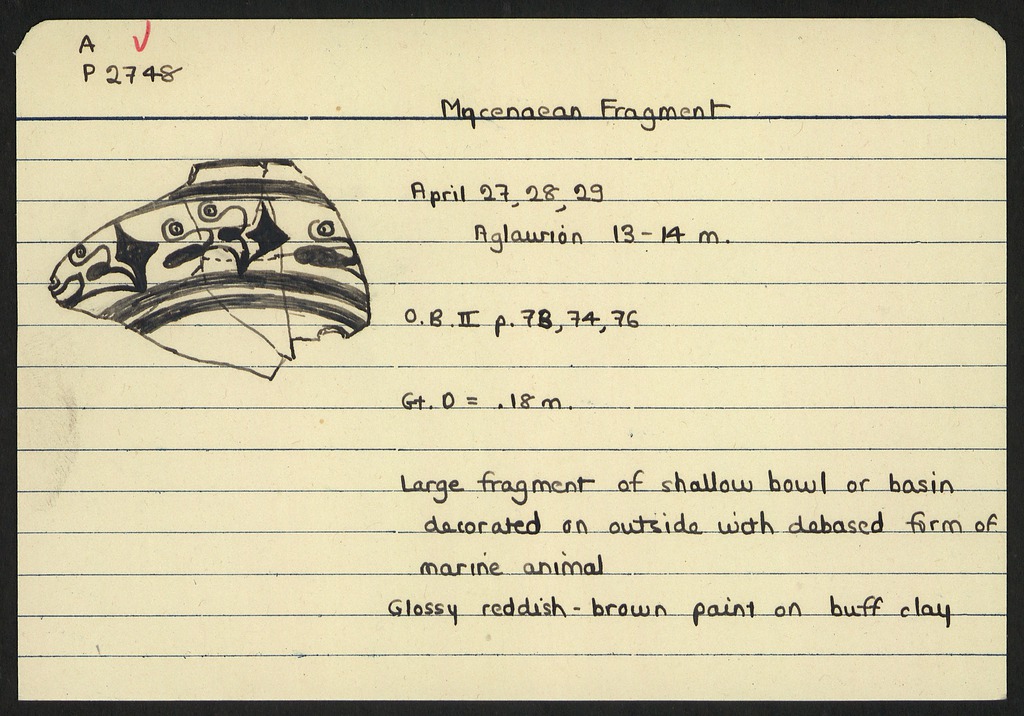 A ✓
P 2748
Mycenaean Fragment
April 27, 28, 29
Aglaurion 13-14 m.
O.B. II p. 73, 74, 76
Gt. D = .18 m.
Large fragment of shallow bowl or basin
decorated on outside with debased form of
marine animal
Glossy reddish-brown paint on buff clay